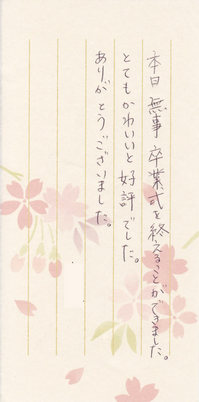 本日 無事 卒業式を終えることができました。
とてもかわいいと好評でした。
ありがとうございました。